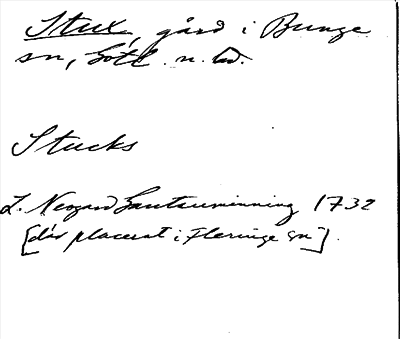 Stux, gård i Bunge
sn, Gotl. n. hd.
Stucks
L. Neogard Gautauminning 1732
[där placerat i Fleringe sn].